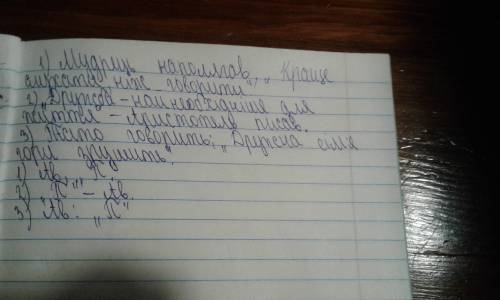 1) Мудрец наполягав, „ Краще
мужсты ніж говорити".
2) „Дружба – найнеобхідніше для
життя – Аристотель писав.
3) Часто говорить: „Дружна сім'я
гори зрушить".
1) Ав, „ П".
2) „П" – Ав.
3) Ав: „П"